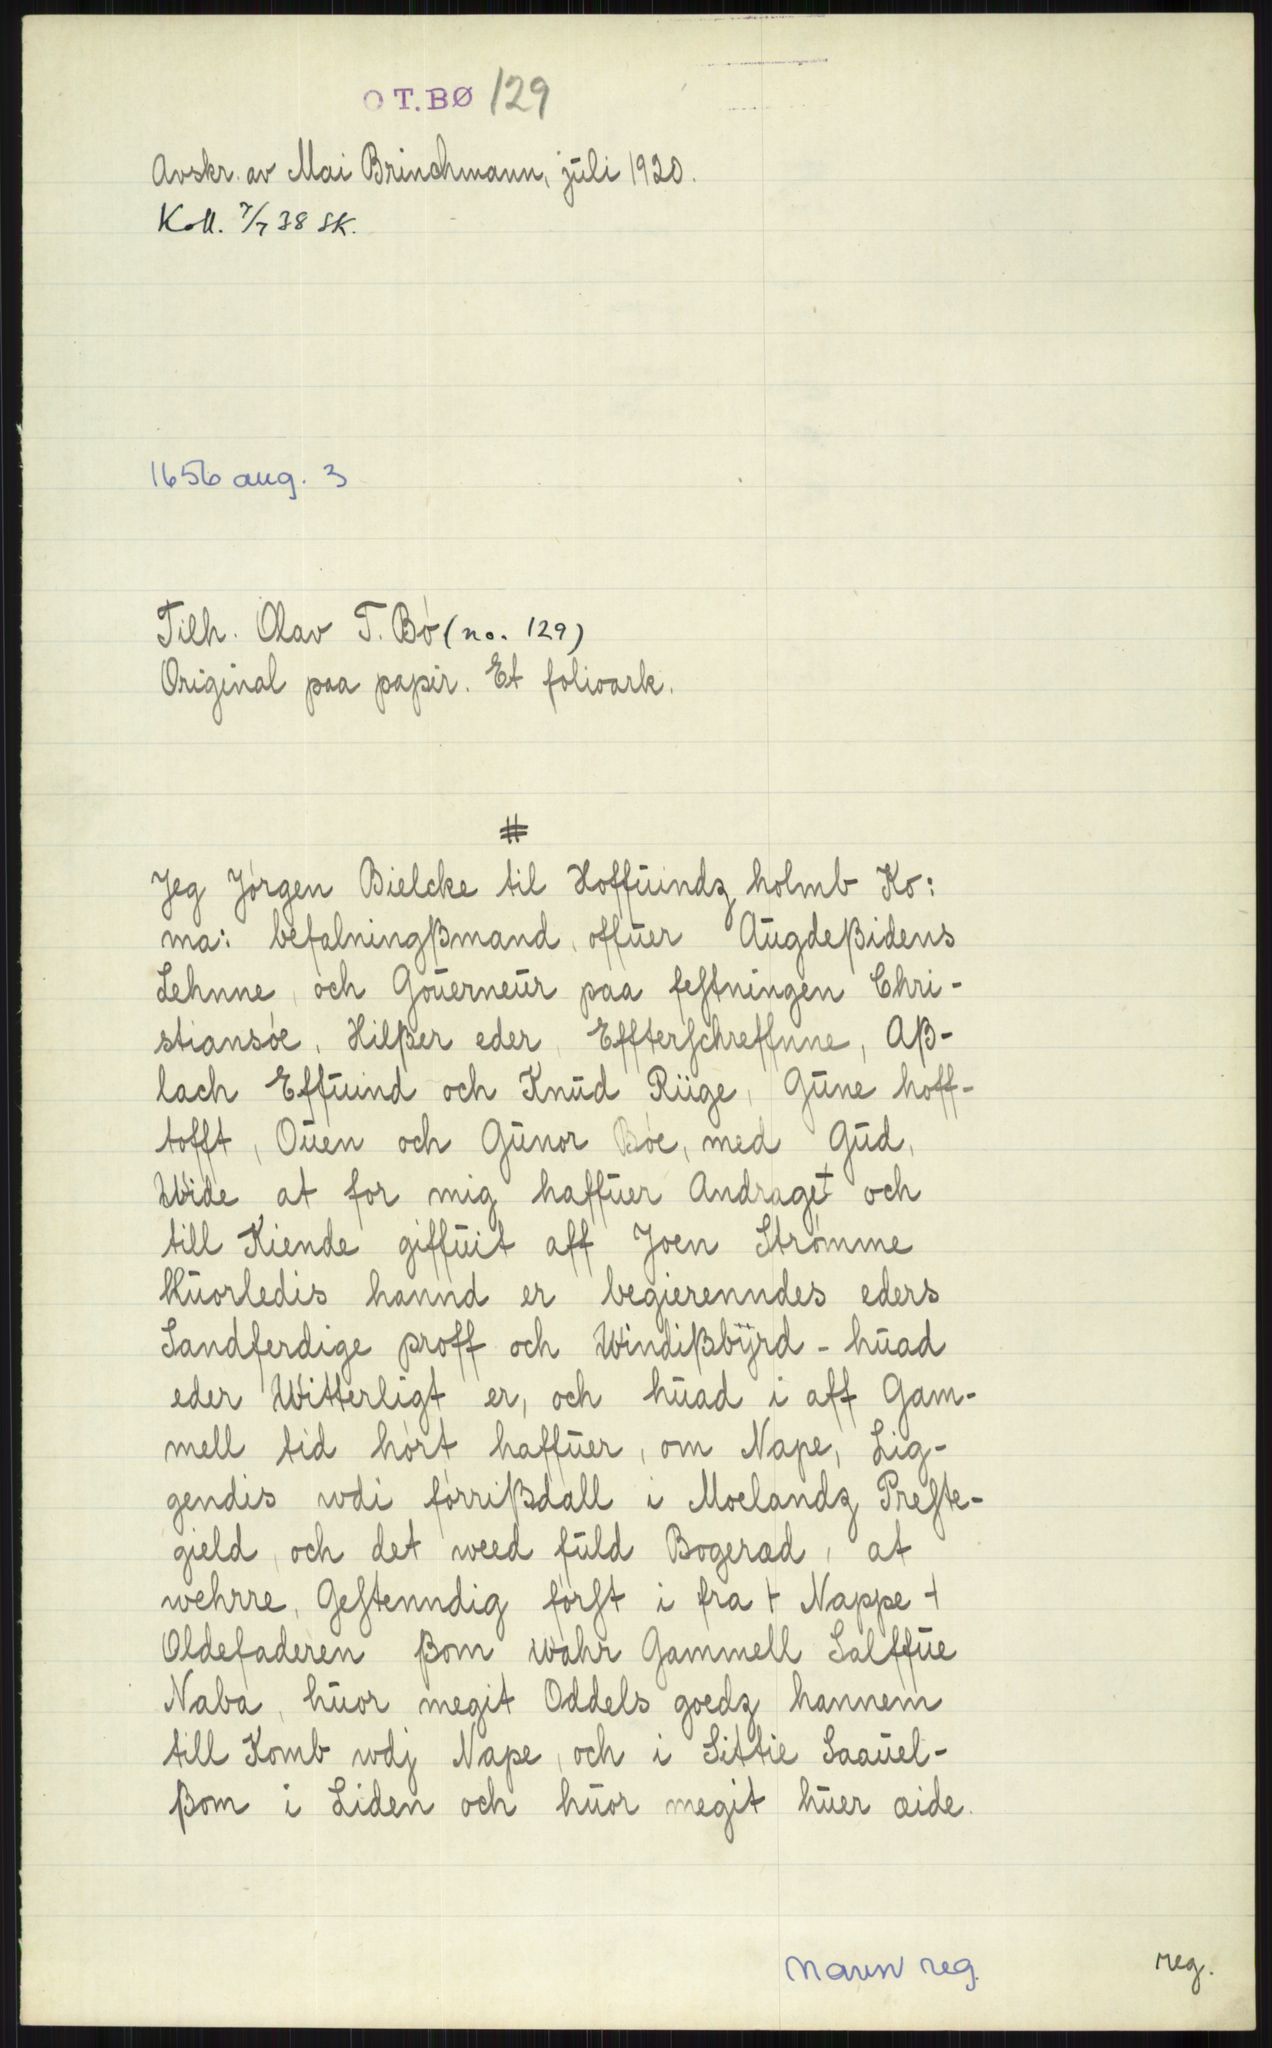 O T. BØ 129
Avskr. av Mai Brinchmann, juli 1920.
Koll. 7/7 38 SK.
1656 aug. 3
Tilh. Olav T. Bø (no. 129)
Original paa papir. Et folioark.
#
Jeg Jørgen Bielcke til Hoffuindz holmb Ko:
ma: befalningßmand, offuer Augdeßidens
Lehnne, och Gouerneur paa festningen Chri-
stiansøe, Hilßer eder, Effterschreffnne, Aß-
lach Effuind och Knud Riige, Gune hoff-
tofft, Ouen och Gunor Bøe, med Gud,
Wide at for mig haffuer Andraget och
till Kiende giffuit aff Joen Strømme
Huorledis hannd er begierenndes eders
Sandferdige proff och Windißbÿrd - huad
eder Witterligt er, och huad i aff Gam-
mell tid hørt haffuer, om Nape, Lig-
gendis wdi førrißdall i Moelandz Preste-
gield, och det weed fuld Bogerad, at
wehrre, Gestenndig først i fra + Nappe +
Oldefaderen ßom wahr Gammell Salffue
Naba, huor megit Oddels goedz hannem
till Komb wdj Nape, och i Sittie Saauel-
ßom i Liden och huor megit huer æide.
Navn reg.
reg.